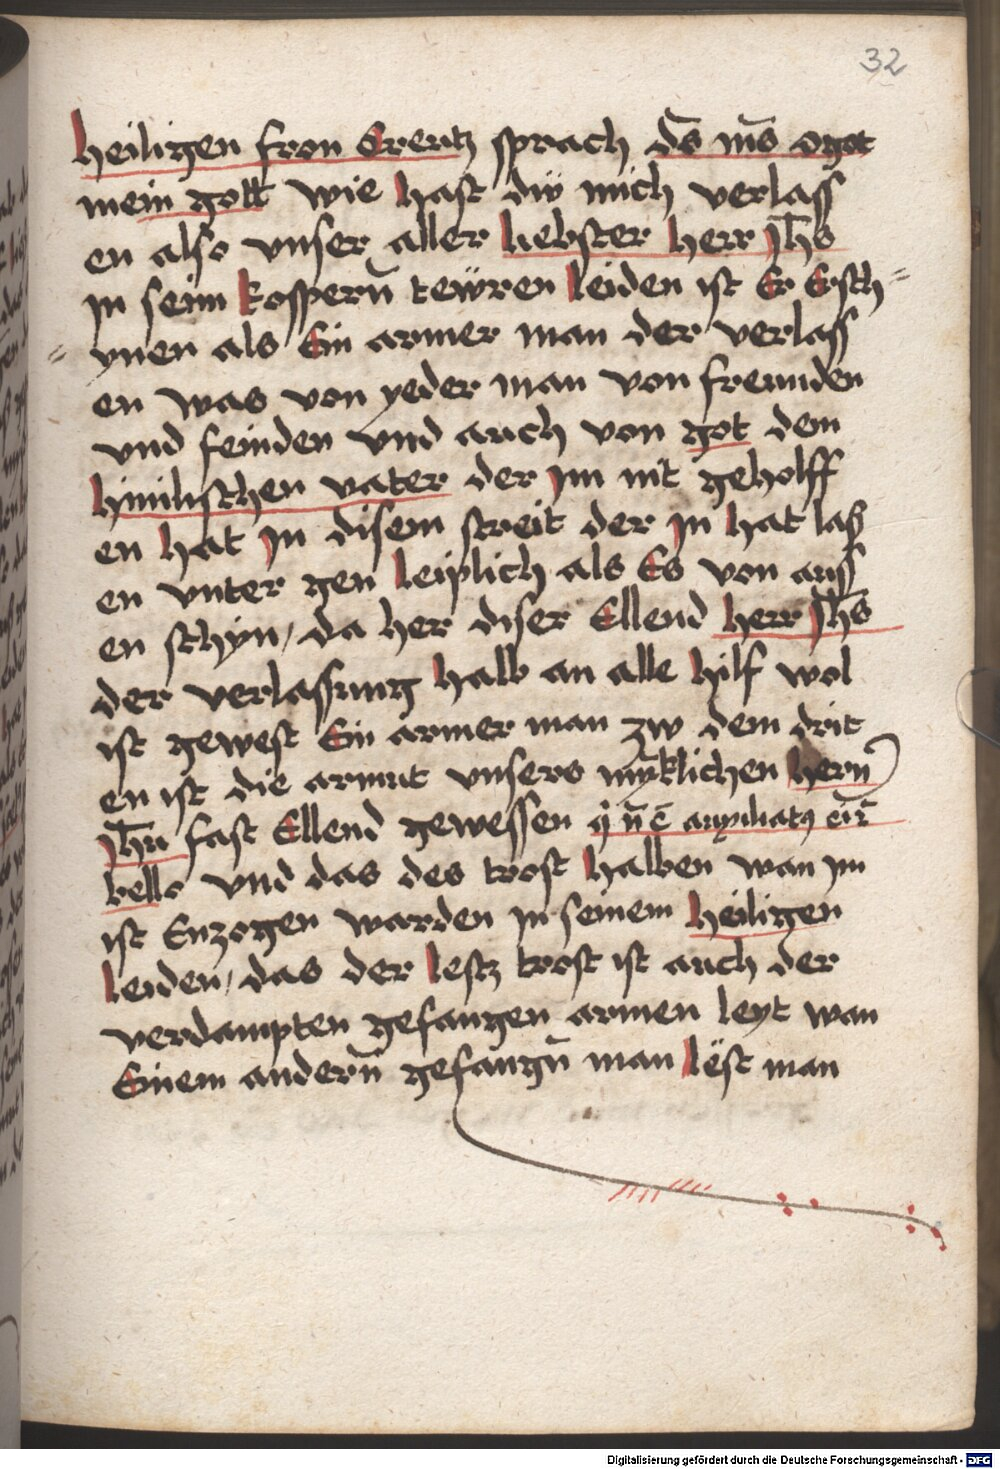 32
heiligen fron Creutz sprach ds̄ ms̄ o got
mein gott wie hast dü mich verlass
en also vnser aller liebster herr Jh̄s
jn seim kosperñ tewren leiden ist Er Ersch-
ynen als Ein armer man der verlass
en was von yeder man von freunden
vnd feinden vnd auch von got dem
himlischen vater der jm nit geholff
en hat jn disem streit der jn hat laß
en vnter gen leiplich als Es von auss
en schyn, da her diser Ellend herr Jh̄s
der verlassung halb an alle hilf wol
ist gewest Ein armer man zw dem drit
en ist die armut vnsers myn̄klichen hern
Jh̄u fast Ellend gewessen q̄ n̄ ē auxiliatꝰ eīs
bello vnd das des trost halben wan jm
ist Enzogen warden jn seinem heiligen
leiden, das der lestz trost ist auch der
verdampten gefangen armen leyt wan
Einem anderñ gefangñ man lëst man
Digitalisierung gefördert durch die Deutsche Forschungsgemeinschaft - DFG